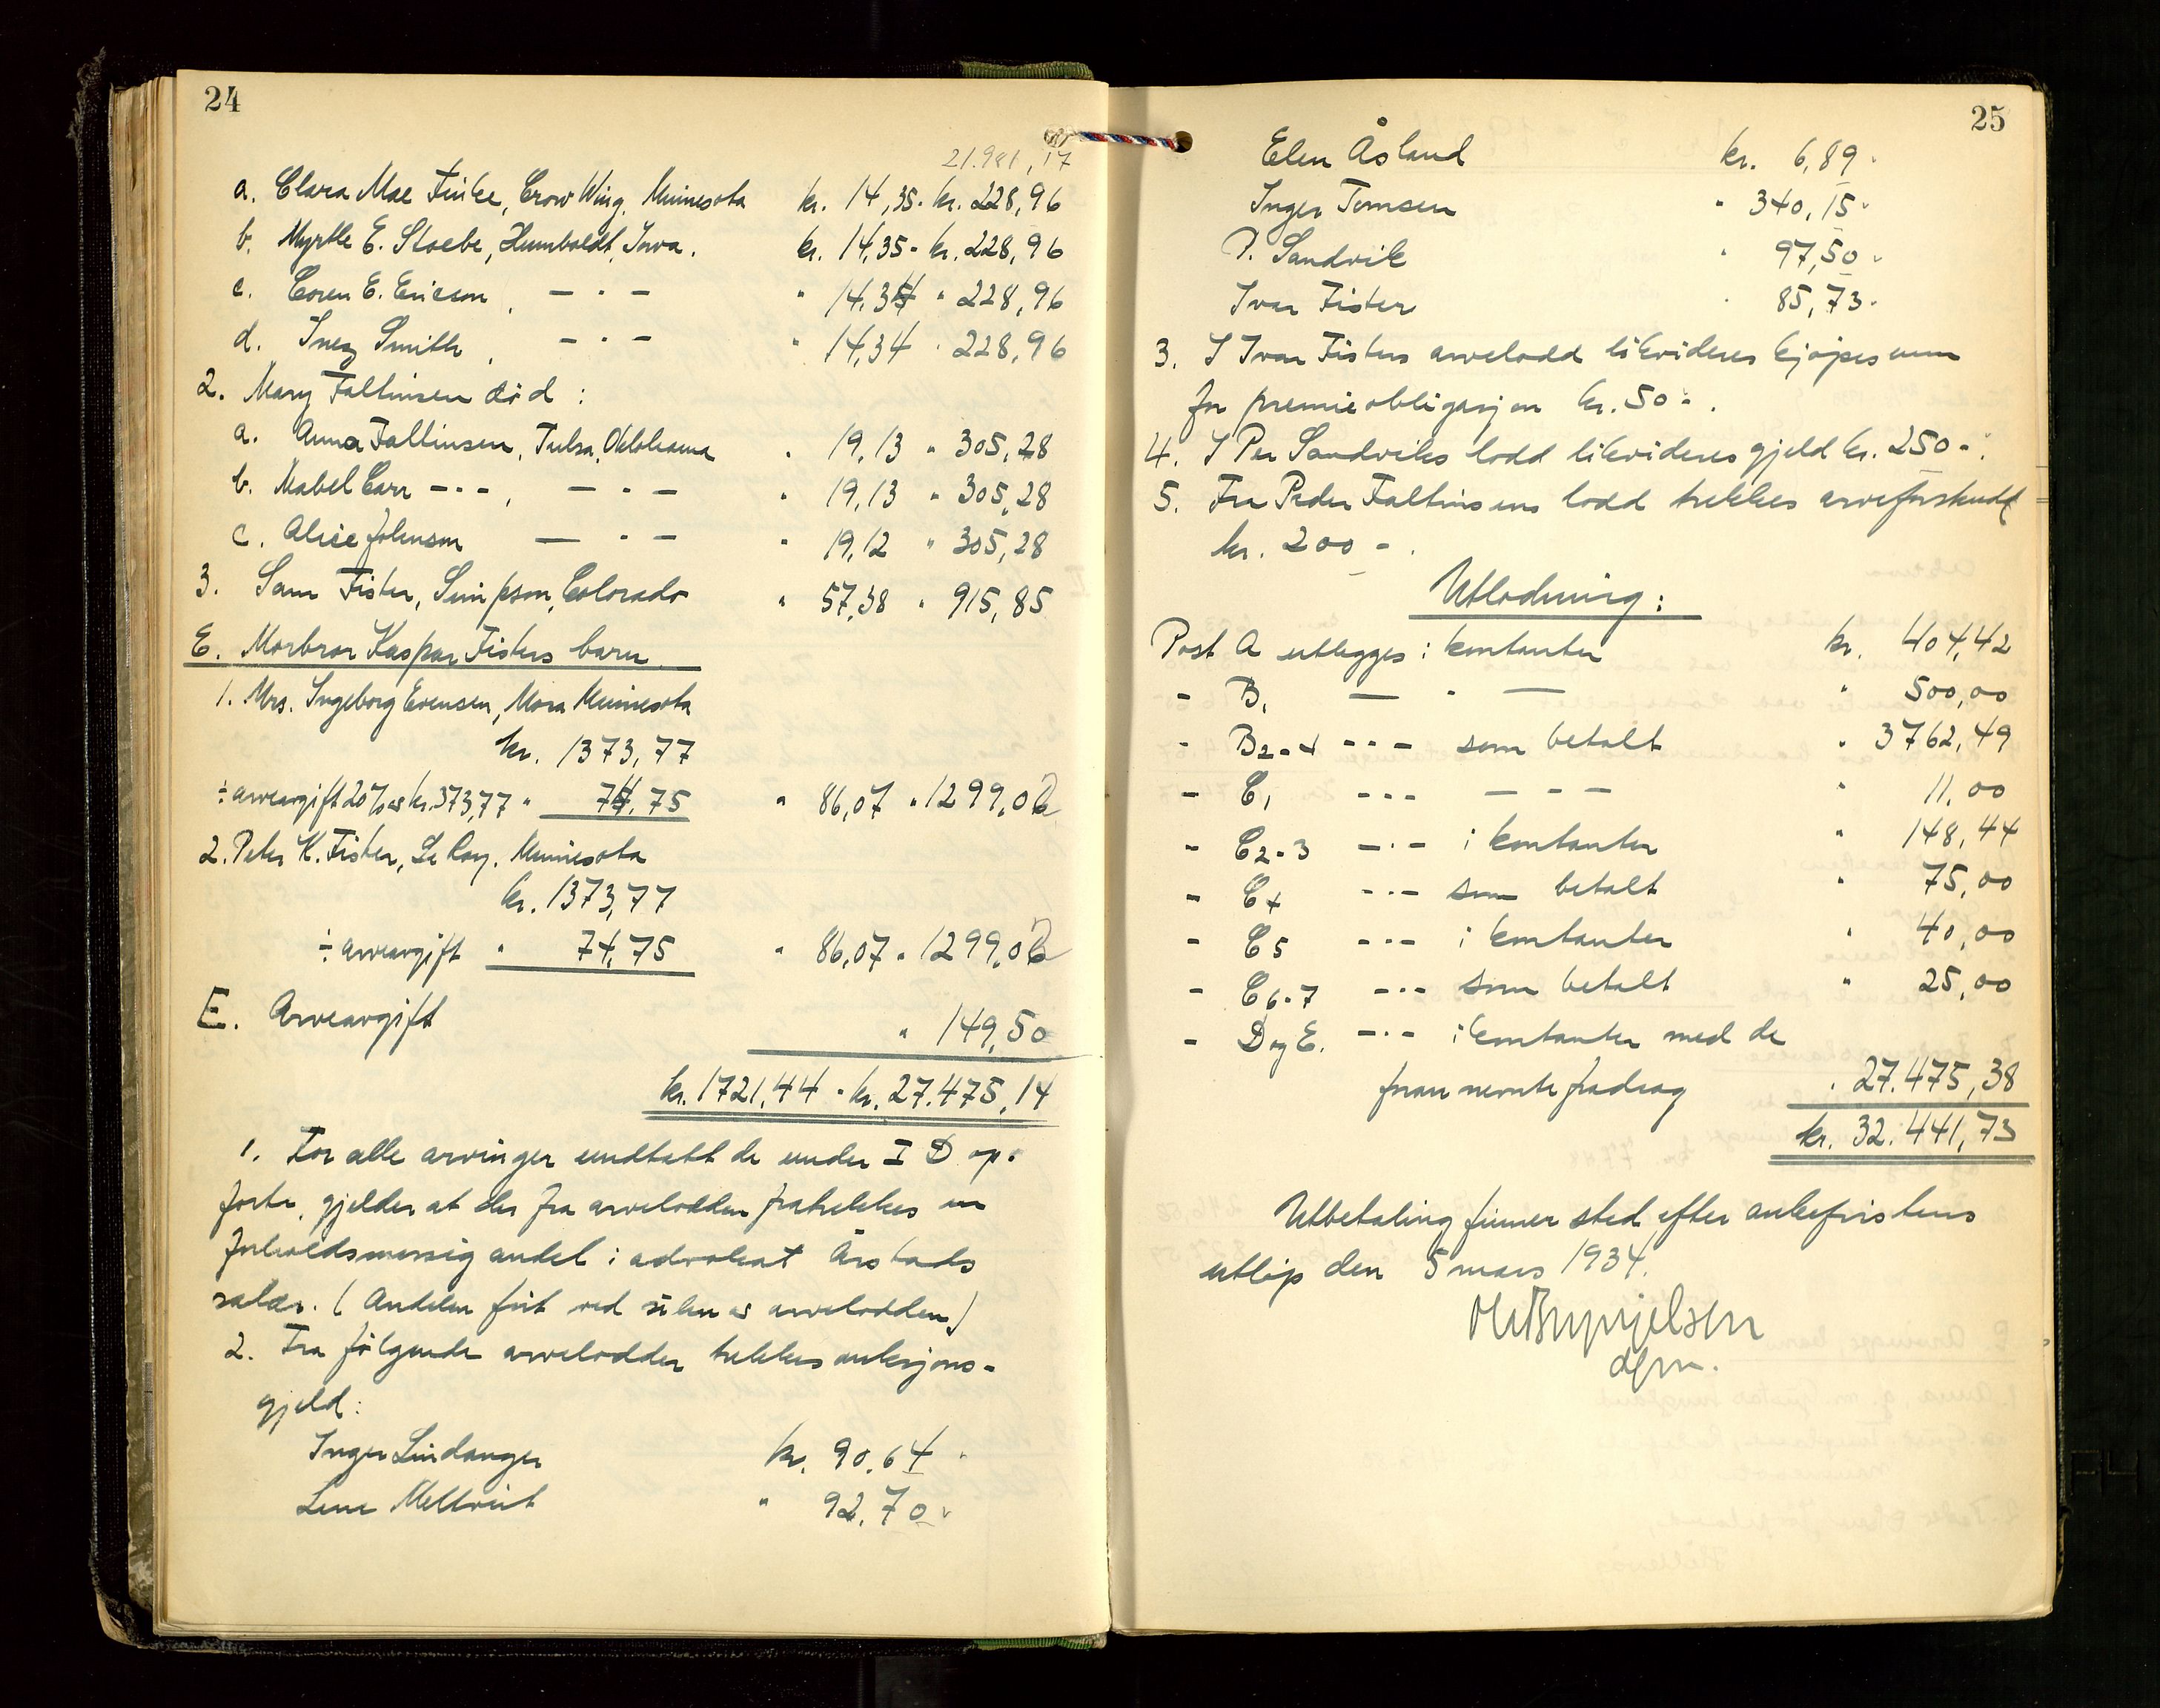 24
21.981,17
a. Clara Mae Finke, Crow Wing, Minnesota kr. 14,35 - kr. 228,96
b. Myrtle E. Stoebe, Humboldt, Iowa. kr. 14,35 - kr. 228,96
c. Coren E. Ericson, — " — " 14,34 " 228,96
d. Inez Smith, — " — " 14,34 " 228,96
2. Mary Faltinsen død:
a. Anna Faltinsen, Tulsa, Oklohama " 19,13 " 305,28
b. Mabel Carr - " -, — " — " 19,13 " 305,28
c. Alice Johnson — " — " 19,12 " 305,28
3. Sam Fister, Simpson, Colorado " 57,38 " 915,85
E. Morbror Kaspar Fisters barn
1. Mrs. Ingeborg Evensen, Mora Minnesota
kr. 1373,77
÷ arveavgift 20% av kr. 373,77 " 74,75 " 86,07 " 1299,02
2. Peter K. Fister, Le Roy, Minnesota
kr. 1373,77
÷ arveavgift " 74,75 " 86,07 " 1299,02
E. Arveavgift " 149,50
kr. 1721,44 - kr. 27.475,14
1. For alle arvinger undtatt de under I D op-
førte, gjelder at der fra arvelodden fratrekkes en
forholdsmessig andel i advokat Årstads
salær. (Andelen ført ved siden av arvelodden)
2. Fra følgende arvelodder trekkes auksjons-
gjeld:
Inger Lindanger kr. 90,64
Lene Meltveit " 92,70
25
Elen Åsland kr. 6,89
Inger Tomsen " 340,15
P. Sandvik " 97,50
Ivar Fister " 85,73
3. I Ivar Fisters arvelodd likvideres kjøpesum
for premieobligasjon kr. 50 - .
4. I Per Sandviks lodd likvideres gjeld kr. 250 - .
5. Fra Peder Faltinsens lodd trekkes arveforskudd
kr. 200 - .
Utlodning:
Post A utlegges i kontanter kr. 404,42
- B1 — " — " 500,00
- B2-4 - " - som betalt " 3762,49
- C1 - " - — " — " 11,00
- C2-3 - " - i kontanter " 148,44
- C4 - " - som betalt " 75,00
- C5 - " - i kontanter " 40,00
- C6-7 - " - som betalt " 25,00
- D og E. - " - i kontanter med de
foran nevnte fradrag " 27.475,38
kr. 32.441,73
Utbetaling finner sted efter ankefristens
utløp den 5 mars 1934.